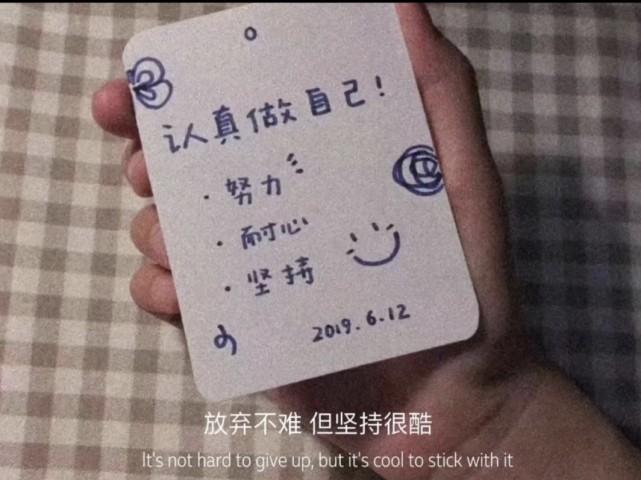 认真做自己！
·努力
·耐心
·坚持
2019.6.12
放弃不难 但坚持很酷
It's not hard to give up, but it's cool to stick with it